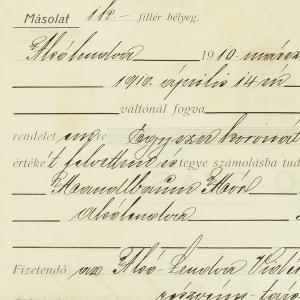 Másolat 1 k.– fillér bélyeg.
Alsólendva 1910. március
1910. április 14 én
váltónál fogva
rendelet emre Egyezer koronát
értéke t felvettem és tegye számolásba tud
Mór
Alsólendva
Fizetendő az Alsó-Lendva Vidéki
részvény-tár